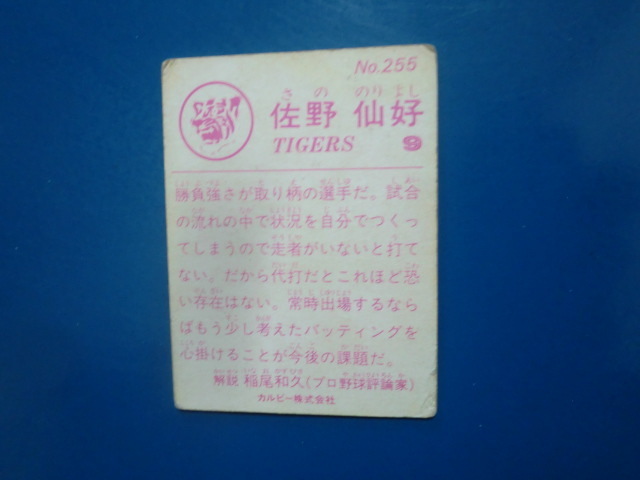 No.255
さの のりよし
佐野 仙好
TIGERS 9
勝負強さが取り柄の選手だ。試合
の流れの中で状況を自分でつくっ
てしまうので走者がいないと打て
ない。だから代打だとこれほど恐
い存在はない。常時出場するなら
ばもう少し考えたバッティングを
心掛けることが今後の課題だ。
解説 稲尾和久(プロ野球評論家)
カルビー株式会社